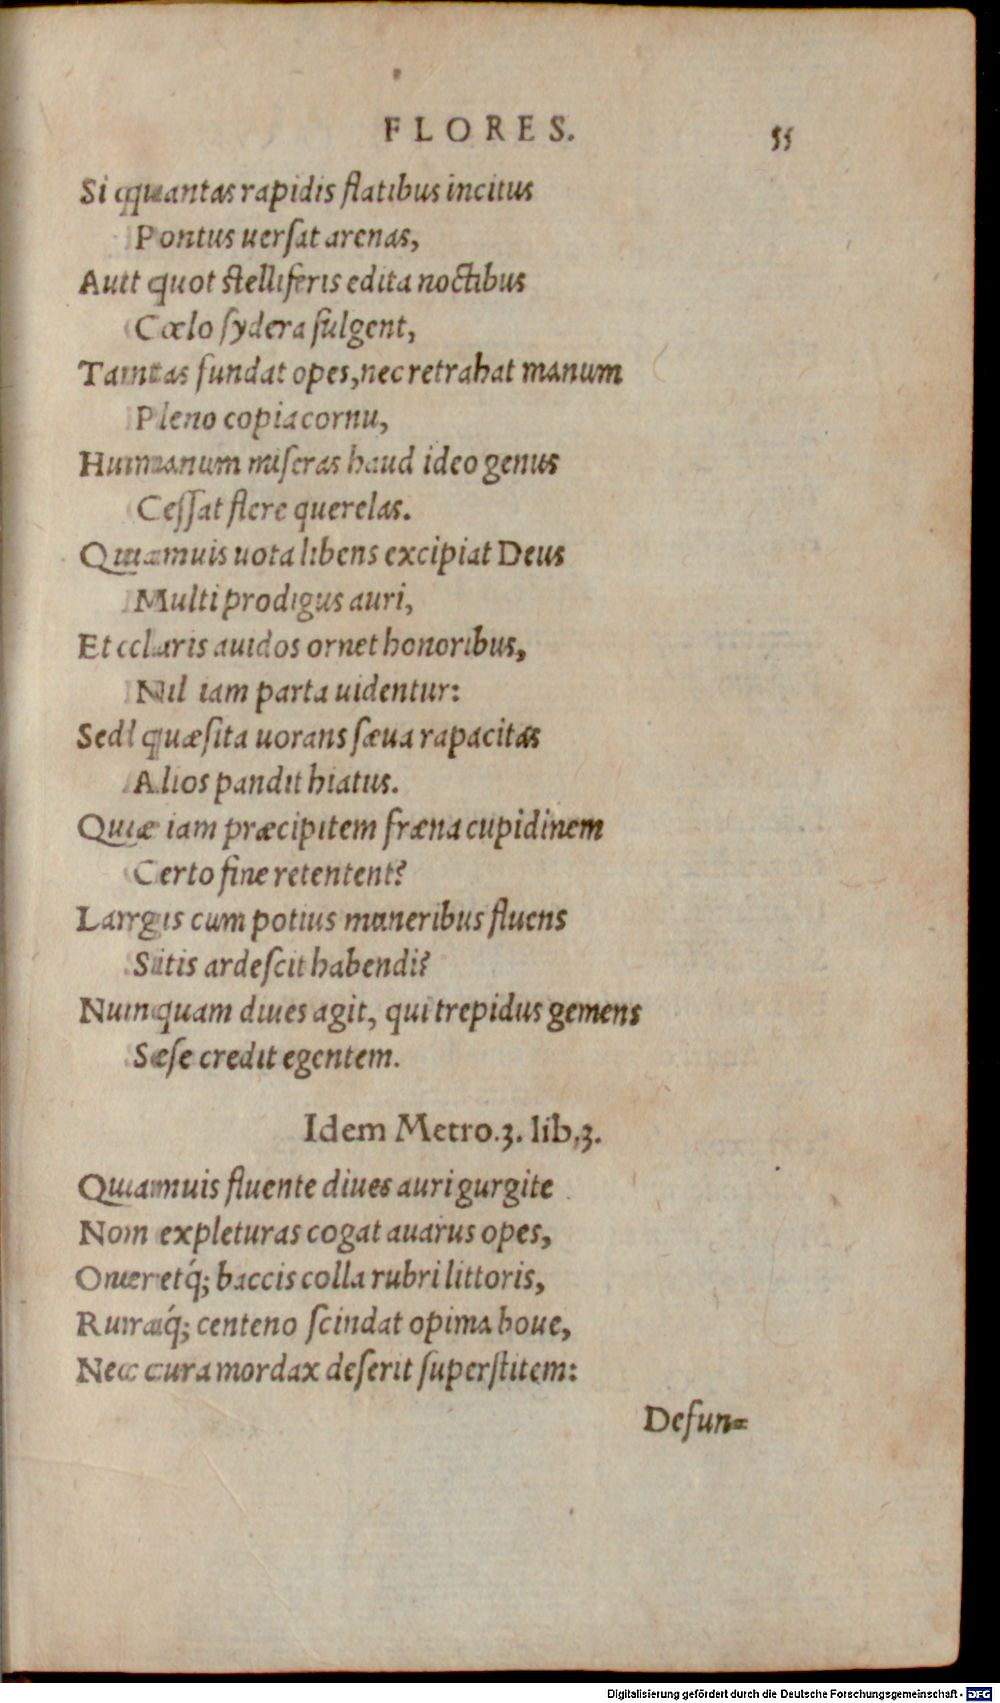 FLORES. 55
Si quantas rapidis flatibus incitus
Pontus uersat arenas,
Aut quot stelliferis edita noctibus
Cœlo sydera fulgent,
Tantas fundat opes, nec retrahat manum
Pleno copia cornu,
Humanum miseras haud ideo genus
Cessat flere querelas.
Quamuis uota libens excipiat Deus
Multi prodigus auri,
Et claris auidos ornet honoribus,
Nil iam parta uidentur:
Sed quæsita uorans sæua rapacitas
Alios pandit hiatus.
Quæ iam præcipitem fræna cupidinem
Certo fine retentent?
Largis cum potius muneribus fluens
Sitis ardescit habendi?
Nunquam diues agit, qui trepidus gemens
Sese credit egentem.
Idem Metro.3. lib.3.
Quamuis fluente diues auri gurgite
Non expleturas cogat auarus opes,
Oneretq́; baccis colla rubri littoris,
Ruraq́; centeno scindat opima boue,
Nec cura mordax deserit superstitem:
Defun=
Digitalisierung gefördert durch die Deutsche Forschungsgemeinschaft - DFG